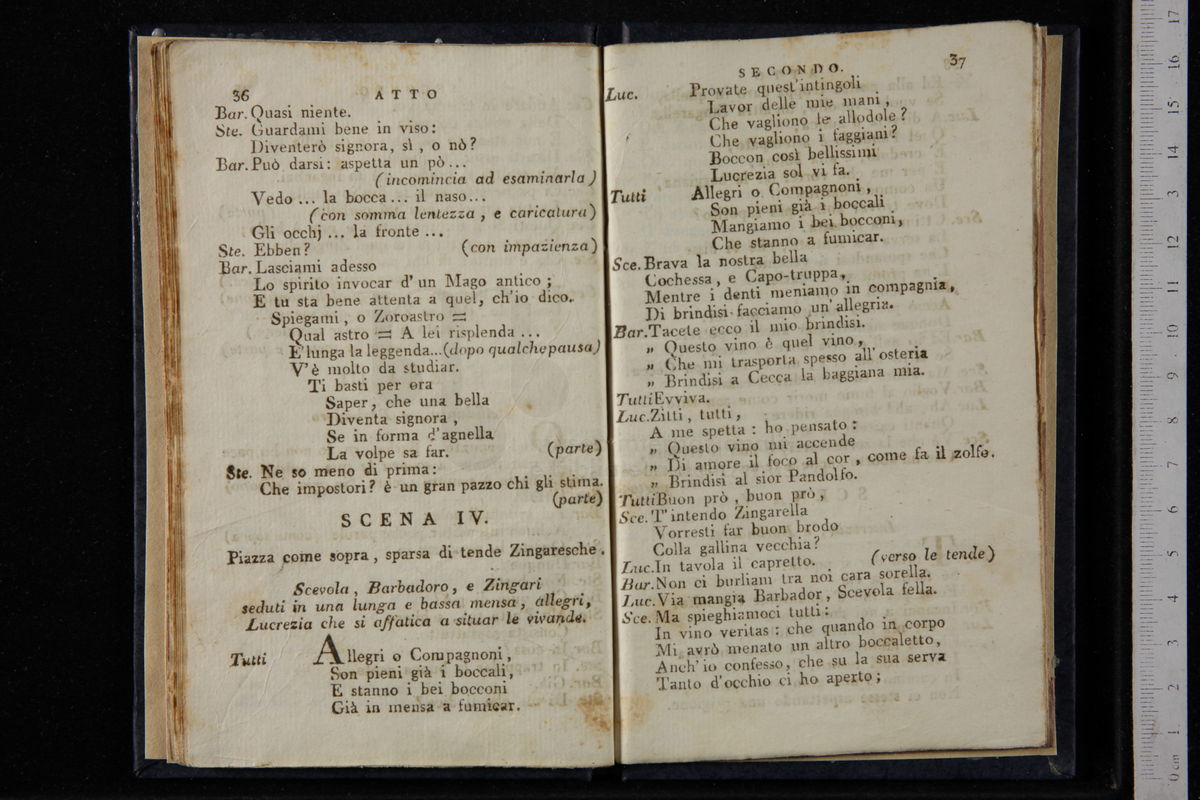 36 ATTO
Bar. Quasi niente.
Ste. Guardami bene in viso:
Diventerò signora, sì, o nò?
Bar. Può darsi: aspetta un pò...
(incomincia ad esaminarla)
Vedo ... la bocca ... il naso...
(con somma lentezza, e caricatura)
Gli occhj ... la fronte ...
Ste. Ebben? (con impazienza)
Bar. Lasciami adesso
Lo spirito invocar d'un Mago antico;
E tu sta bene attenta a quel, ch'io dico.
Spiegami, o Zoroastro =
Qual astro = A lei risplenda ...
E' lunga la leggenda...(dopo qualche pausa)
V'è molto da studiar.
Ti basti per ora
Saper, che una bella
Diventa signora,
Se in forma d'agnella
La volpe sa far. (parte)
Ste. Ne so meno di prima:
Che impostori? è un gran pazzo chi gli stima.
(parte)
SCENA IV.
Piazza come sopra, sparsa di tende Zingaresche.
Scevola, Barbadoro, e Zingari
seduti in una lunga e bassa mensa, allegri,
Lucrezia che si affatica a situar le vivande.
Tutti Allegri o Compagnoni,
Son pieni già i boccali,
E stanno i bei bocconi
Già in mensa a fumicar.
SECONDO. 37
Luc. Provate quest'intingoli
Lavor delle mie mani,
Che vagliono le allodole?
Che vagliono i faggiani?
Boccon così bellissimi
Lucrezia sol vi fa.
Tutti Allegri o Compagnoni,
Son pieni già i boccali
Mangiamo i bei bocconi,
Che stanno a fumicar.
Sce. Brava la nostra bella
Cochessa, e Capo-truppa,
Mentre i denti meniamo in compagnia,
Di brindisi facciamo un'allegria.
Bar. Tacete ecco il mio brindisi.
„ Questo vino è quel vino,
„ Che mi trasporta spesso all'osteria
„ Brindisi a Cecca la baggiana mia.
Tutti Evviva.
Luc. Zitti, tutti,
A me spetta: ho pensato:
„ Questo vino mi accende
„ Di amore il foco al cor, come fa il zolfo.
„ Brindisi al sior Pandolfo.
Tutti Buon prò, buon prò,
Sce. T'intendo Zingarella
Vorresti far buon brodo
Colla gallina vecchia?
Luc. In tavola il capretto. (verso le tende)
Bar. Non ci burliam tra noi cara sorella.
Luc. Via mangia Barbador, Scevola fella.
Sce. Ma spieghiamoci tutti:
In vino veritas: che quando in corpo
Mi avrò menato un altro boccaletto,
Anch'io confesso, che su la sua serva
Tanto d'occhio ci ho aperto;
0 cm 1 2 3 4 5 6 7 8 9 10 11 12 13 14 15 16 17